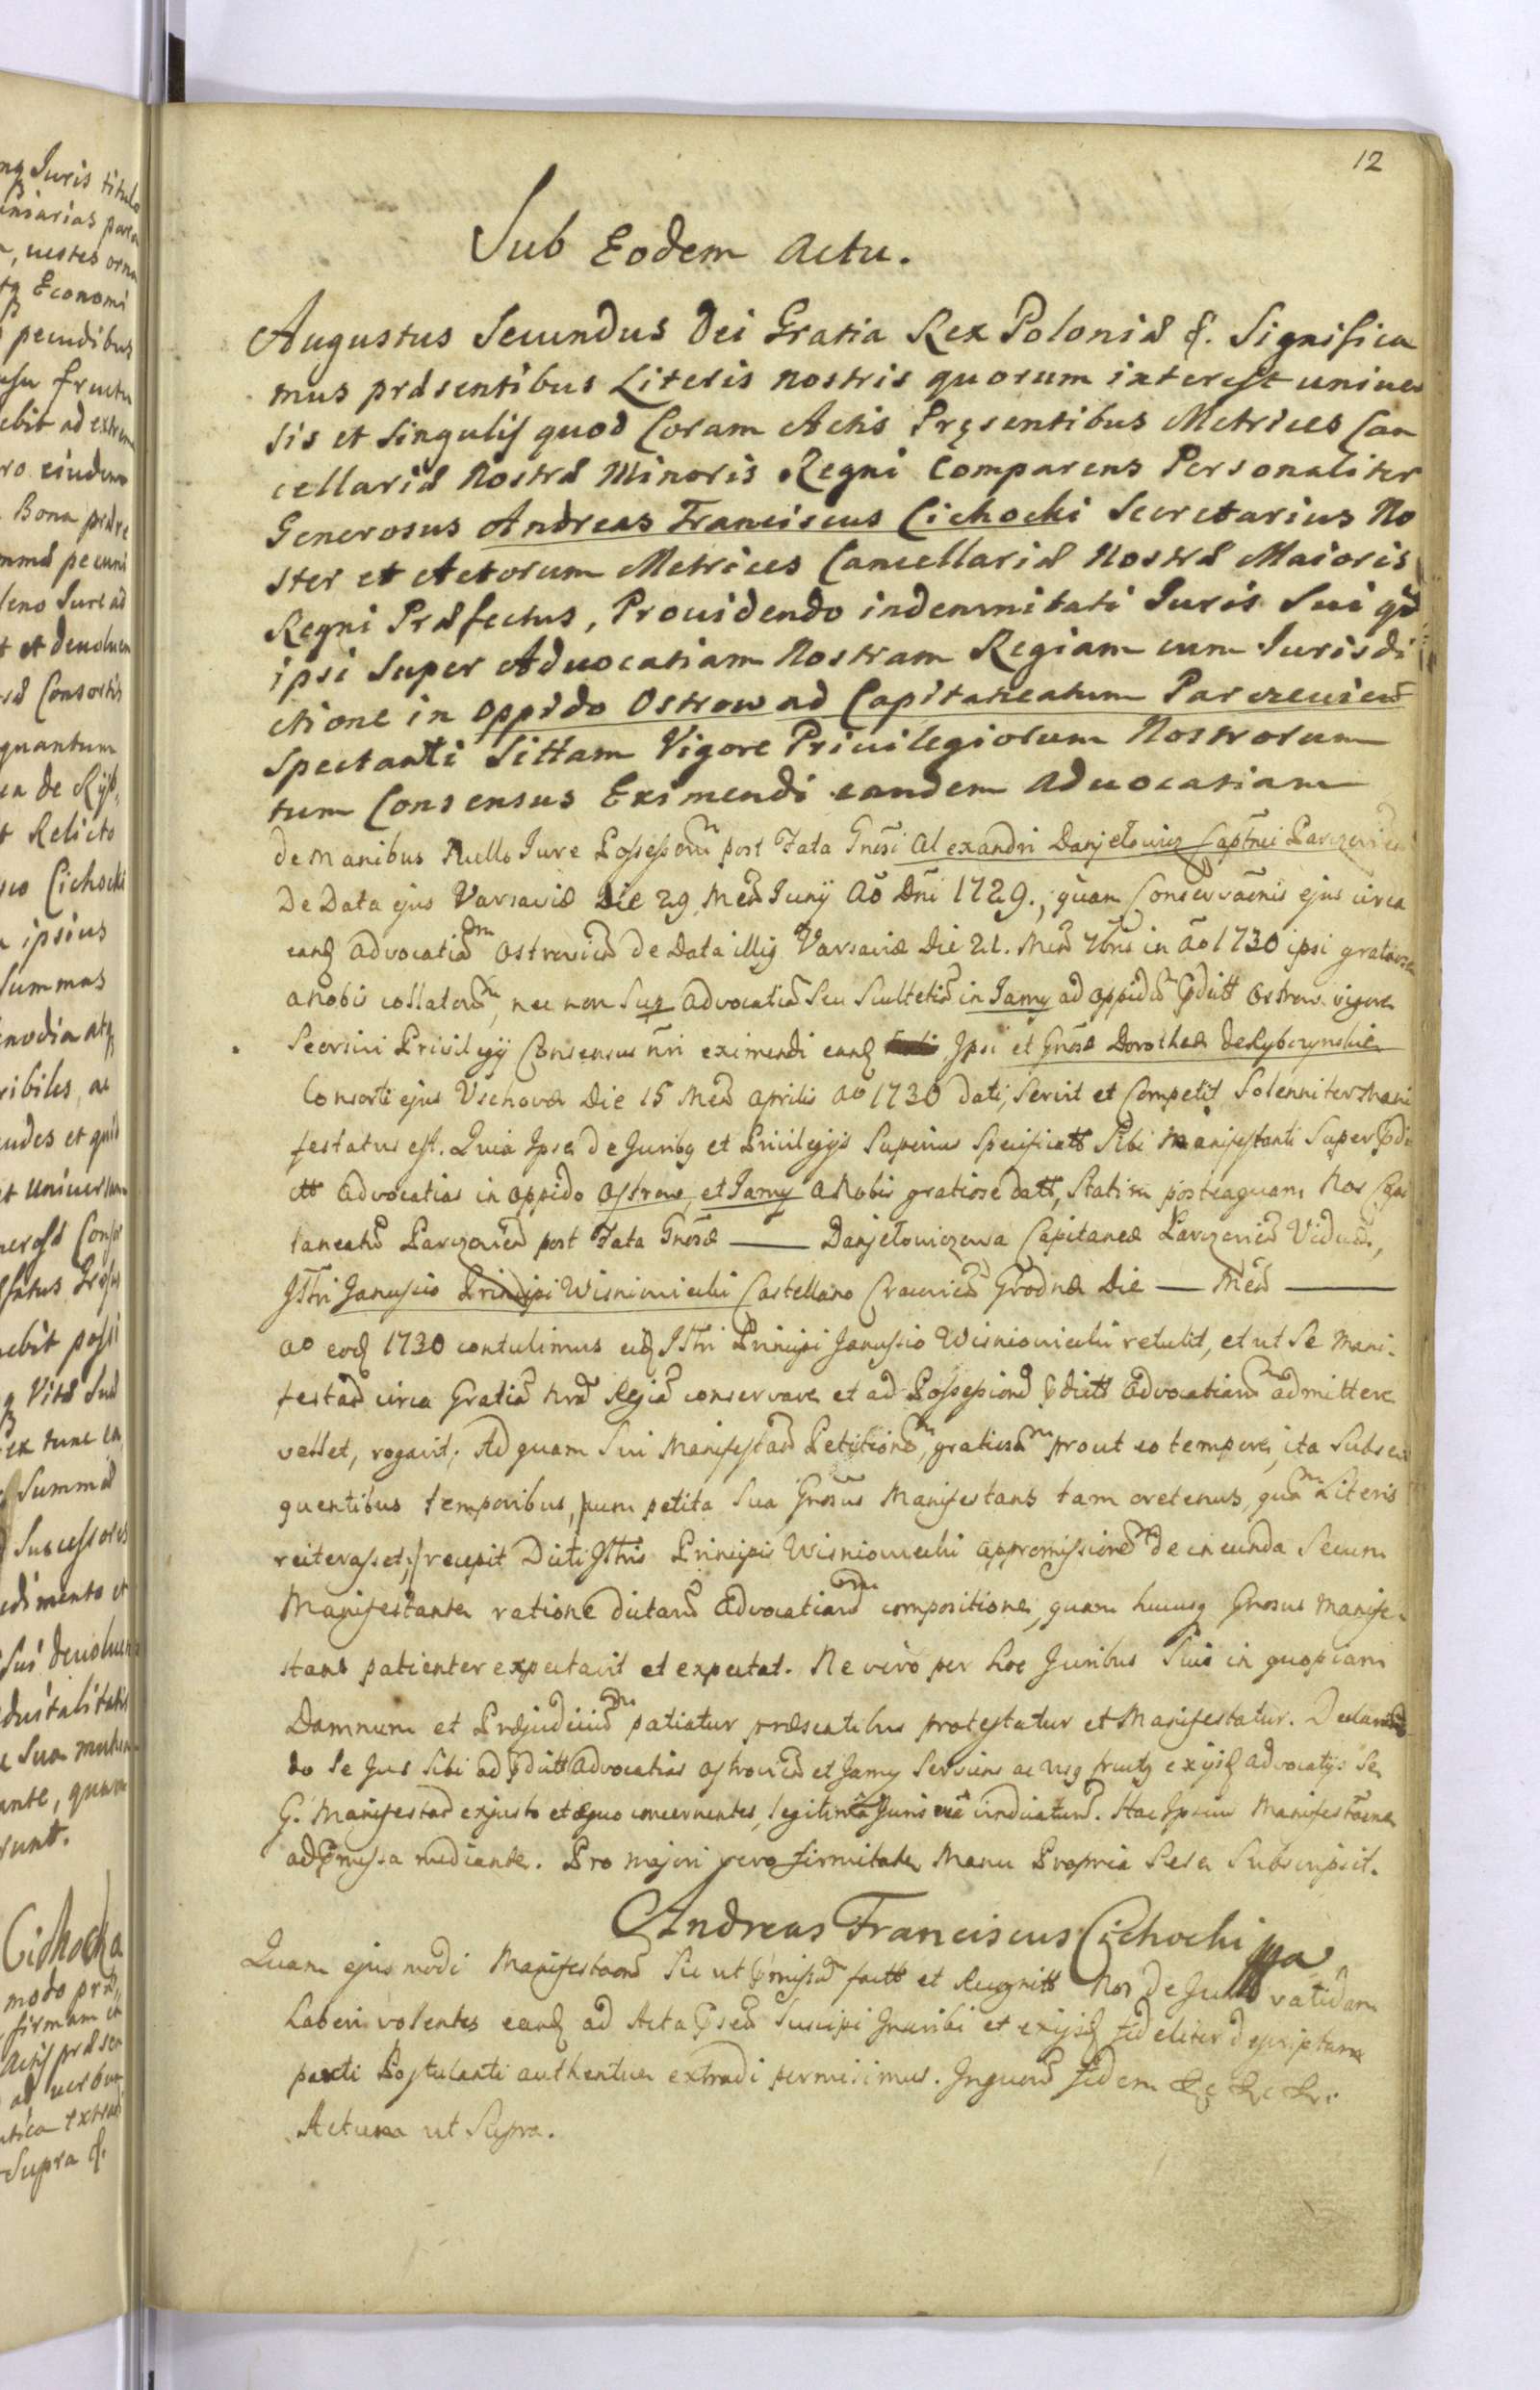 12
Sub Eodem Actu.
Augustus Secundus Dei Gratia Rex Poloniæ &. Significa
mus præsentibus Literis nostris quorum interest univer
sis et singulis quod Coram Actis Præsentibus Metrices Can
cellariæ Nostræ Minoris Regni Comparens Personaliter
Generosus Andreas Franciscus Cichocki Secretarius No
ster et Actorum Metrices Cancellariæ Nostræ Maioris
Regni Præfectus, Prouidendo indemnitati Iuris Sui qd
ipsi Super Aduocatiam Nostram Regiam cum Iurisdi
ctione in Oppido Ostrow ad Capitaneatum Parczeuien
Spectanti Sittam Vigore Priuilegiorum Nostrorum
tum Consensus Eximendi eandem Aduocatiam
de Manibus Nullo Jure Possessorū post Fata Gnōsi Alexandri Danjełowicz Captnei Parczovien
De Data ejus Varsaviæ Die 29 Men Junÿ Aō Dnī 1729., quam Conservāōnis ejus circa
eand Advocatiam Ostrovien de Data illig Varsaviæ Die 21. Men 7bris in Aō 1730 ipsi gratiose
a Nobis collatarum, nec non Sup Advocatia Seu Scultetia in Jamy ad oppidū pdictt Ostrow vigore
Seorsivi Privilegÿ Consensus nri eximendi eand Ipsi et Gnosæ Dorotheæ de Rybczynskie
Consorti ejus Vschovæ Die 15 Men Aprilis Ao 1730 dati, Servit et Competit Solenniter Mani
festatus est. Quia Ipse de Juribq et Privilegijs Superius Specificatt Sibi Manifestanti Super pdi
ctt Advocatias in Oppido Ostrow, et Jamy a Nobis gratiose datt, Statim posteaquam Nos Capi
taneatū Parczovien post Fata Gnosæ — Danjełowiczowa Capitaneæ Parczovien Viduæ,
Jllri Janussio Principi Wisniowiecki Castellano Cracovien Grodnæ Die — Men —
Ao eod 1730 contulimus eid Jllri Principi Janussio Wisniowiecki retulit, et ut Se Mani-
festan circa Gratiā Nrā Regiā conservare et ad Possessionē pdictt Advocatiarum admittere
vellet, rogavit. Ad quam Sui Manifestan Petitionem, gratiosam prout eo tempore, ita Subse
quentibus temporibus, cum petita Sua Gnosus Manifestans tam oretenus, quam Literis
reiterasset, recepit Dicti Jllris Principis Wisniowiecki appromissionem de ineunda Secum
Manifestante ratione dictarū Advocatiarum compositione, quam hucusq Gnosus Manife-
stans patienter expectavit et expectat. Ne vero per hoc Juribus Suis in quopiam
Damnum et Præjudicium patiatur præsentibus protestatur et Manifestatur. Declaran
do Se Jus Sibi ad pdictt Advocatias Ostrovien et Jamy Serviens ac Usq fructq ex ijsd Advocatÿs Se
G. Manifestan ex justo et æquo concernentes, legitima Juris via vindicaturū. Hac Ipsius Manifestaōne
ad pmissa mediante. Pro majori vero firmitate Manu Propria Sese Subscripsit.
Andreas Franciscus Cichocki mpa
Quam ejusmodi Manifestaonē Sic ut pmissū factt et Recognitt Nos de Jure validam
haberi volentes eand ad Acta psen Suscipi Inscribi et ex ijsd fideliter descriptam
parti Postulanti authentice extradi permisimus. In quorū fidem &c &c &c.
Actum ut Supra.